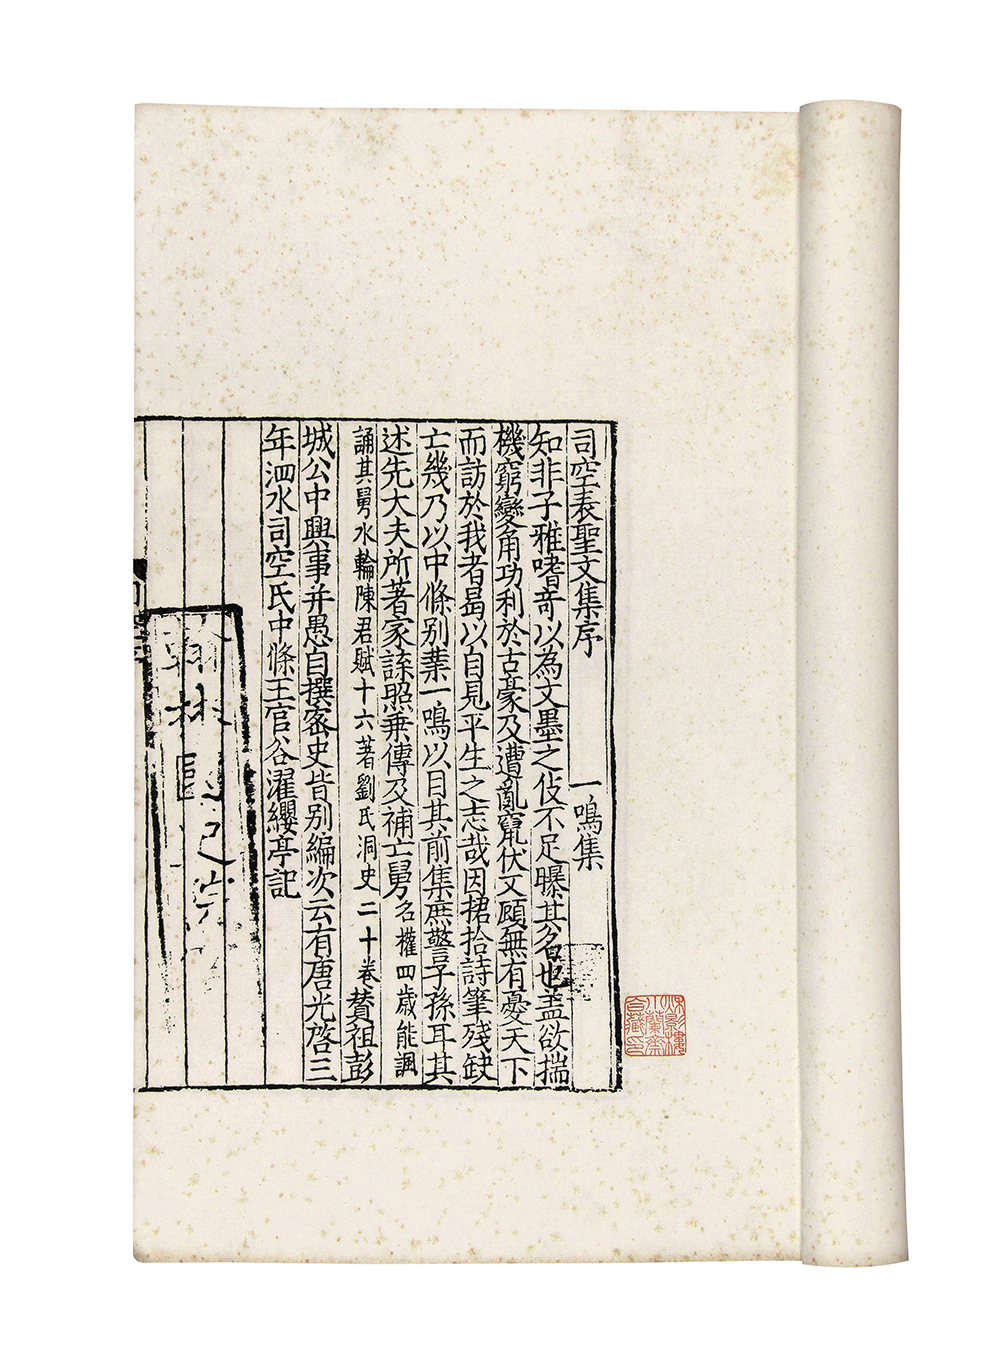 司空表聖文集序　一鳴集
知非子雅嗜奇以為文墨之伎不足曝其名也盖欲揣
機窮變角功利於古豪及遭亂竄伏又顧無有憂天下
而訪於我者曷以自見平生之志哉因捃拾詩筆殘缺
亡幾乃以中條别業一鳴以目其前集庶警子孫耳其
述先大夫所著家諜照乗傳及補亡舅名權四歲能諷
誦其舅水輪陳君賦十六著劉氏洞史二十卷贊祖彭
城公中興事并愚自撰宻史皆别編次云有唐光啓三
年泗水司空氏中條王官谷濯纓亭記
翰林國史院